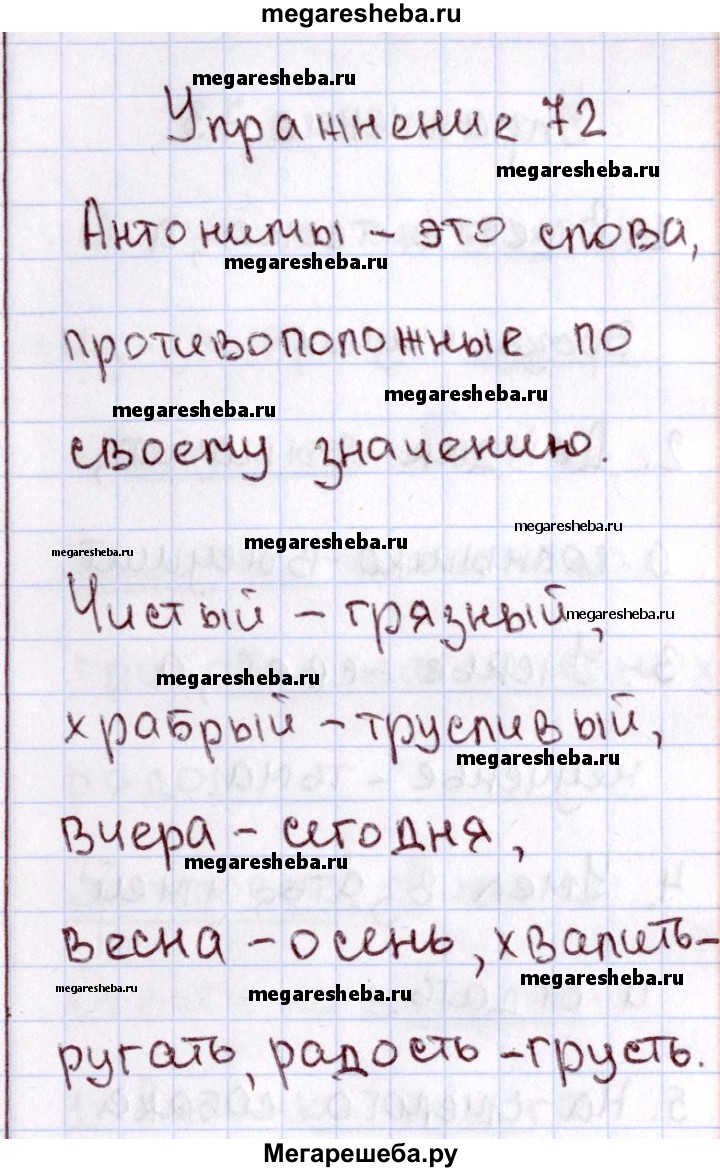 megaresheba.ru
megaresheba.ru
Упражнение 72
megaresheba.ru
Антонимы – это слова,
megaresheba.ru
противоположные по
megaresheba.ru
megaresheba.ru
своему значению.
megaresheba.ru
megaresheba.ru
megaresheba.ru
Чистый – грязный,
megaresheba.ru
megaresheba.ru
храбрый – трусливый,
megaresheba.ru
вчера – сегодня,
megaresheba.ru
весна – осень, хвалить –
megaresheba.ru
megaresheba.ru
megaresheba.ru
ругать, радость – грусть.
Мегарешеба.ру